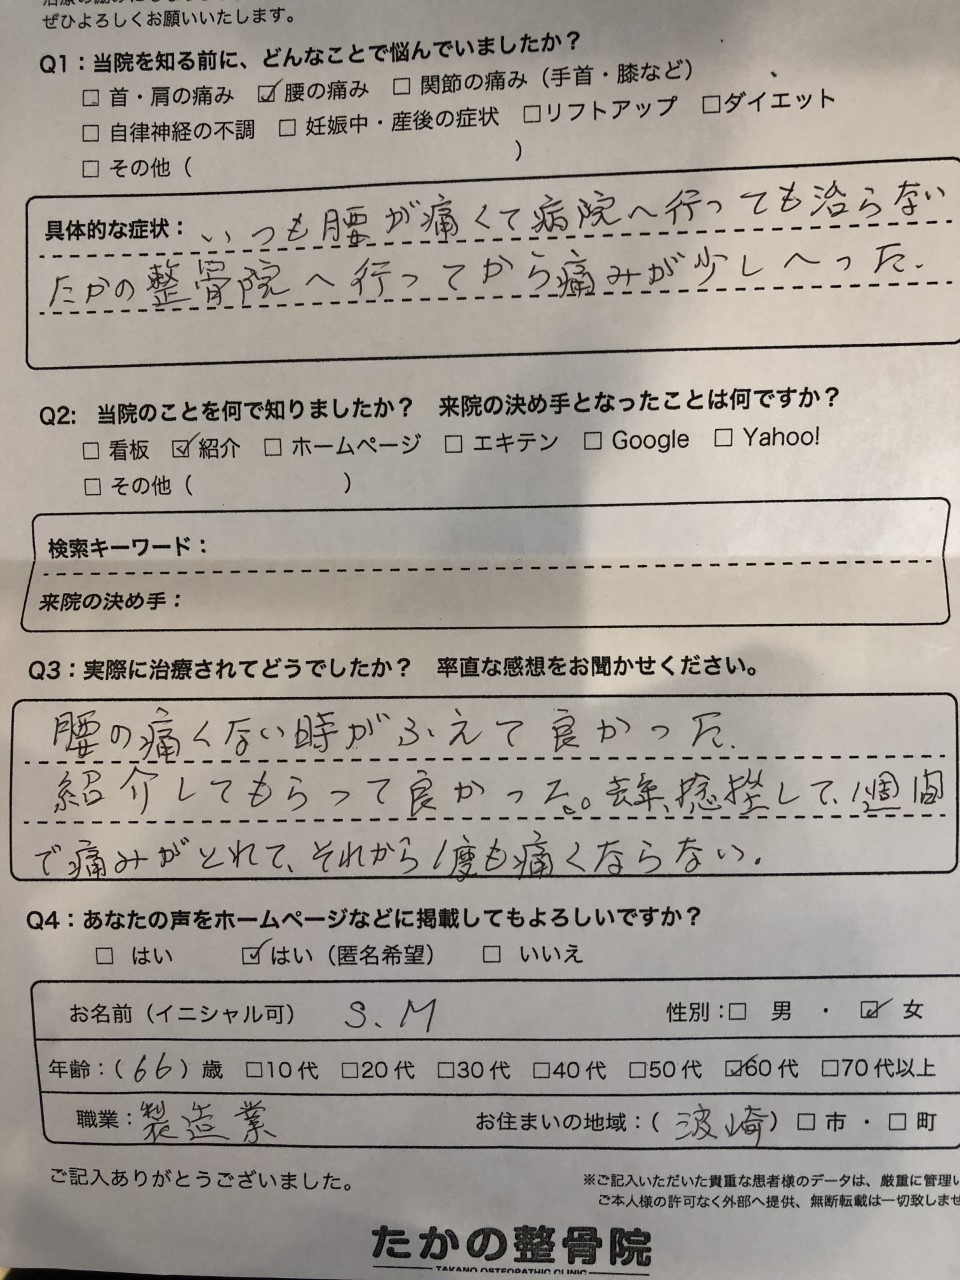 ぜひよろしくお願いいたします。
Q1：当院を知る前に、どんなことで悩んでいましたか？
□ 首・肩の痛み ☑ 腰の痛み □ 関節の痛み（手首・膝など）
□ 自律神経の不調 □ 妊娠中・産後の症状 □リフトアップ □ダイエット
□ その他（ ）
具体的な症状： いつも腰が痛くて病院へ行っても治らない
たかの整骨院へ行ってから痛みが少しへった.
Q2: 当院のことを何で知りましたか？ 来院の決め手となったことは何ですか？
□ 看板 ☑ 紹介 □ ホームページ □ エキテン □ Google □ Yahoo!
□ その他（ ）
検索キーワード：
来院の決め手：
Q3：実際に治療されてどうでしたか？ 率直な感想をお聞かせください。
腰の痛くない時がふえて良かった.
紹介してもらって良かった。去年、捻挫して、1週間
で痛みがとれて、それから1度も痛くならない.
Q4：あなたの声をホームページなどに掲載してもよろしいですか？
□ はい ☑ はい（匿名希望） □ いいえ
お名前（イニシャル可） S.M 性別：□ 男 ・ ☑ 女
年齢：（66）歳 □10代 □20代 □30代 □40代 □50代 ☑60代 □70代以上
職業：製造業 お住まいの地域：（波崎）□ 市 ・ □ 町
ご記入ありがとうございました。
※ご記入いただいた貴重な患者様のデータは、厳重に管理い
ご本人様の許可なく外部へ提供、無断転載は一切致しませ
たかの整骨院
TAKANO OSTEOPATHIC CLINIC